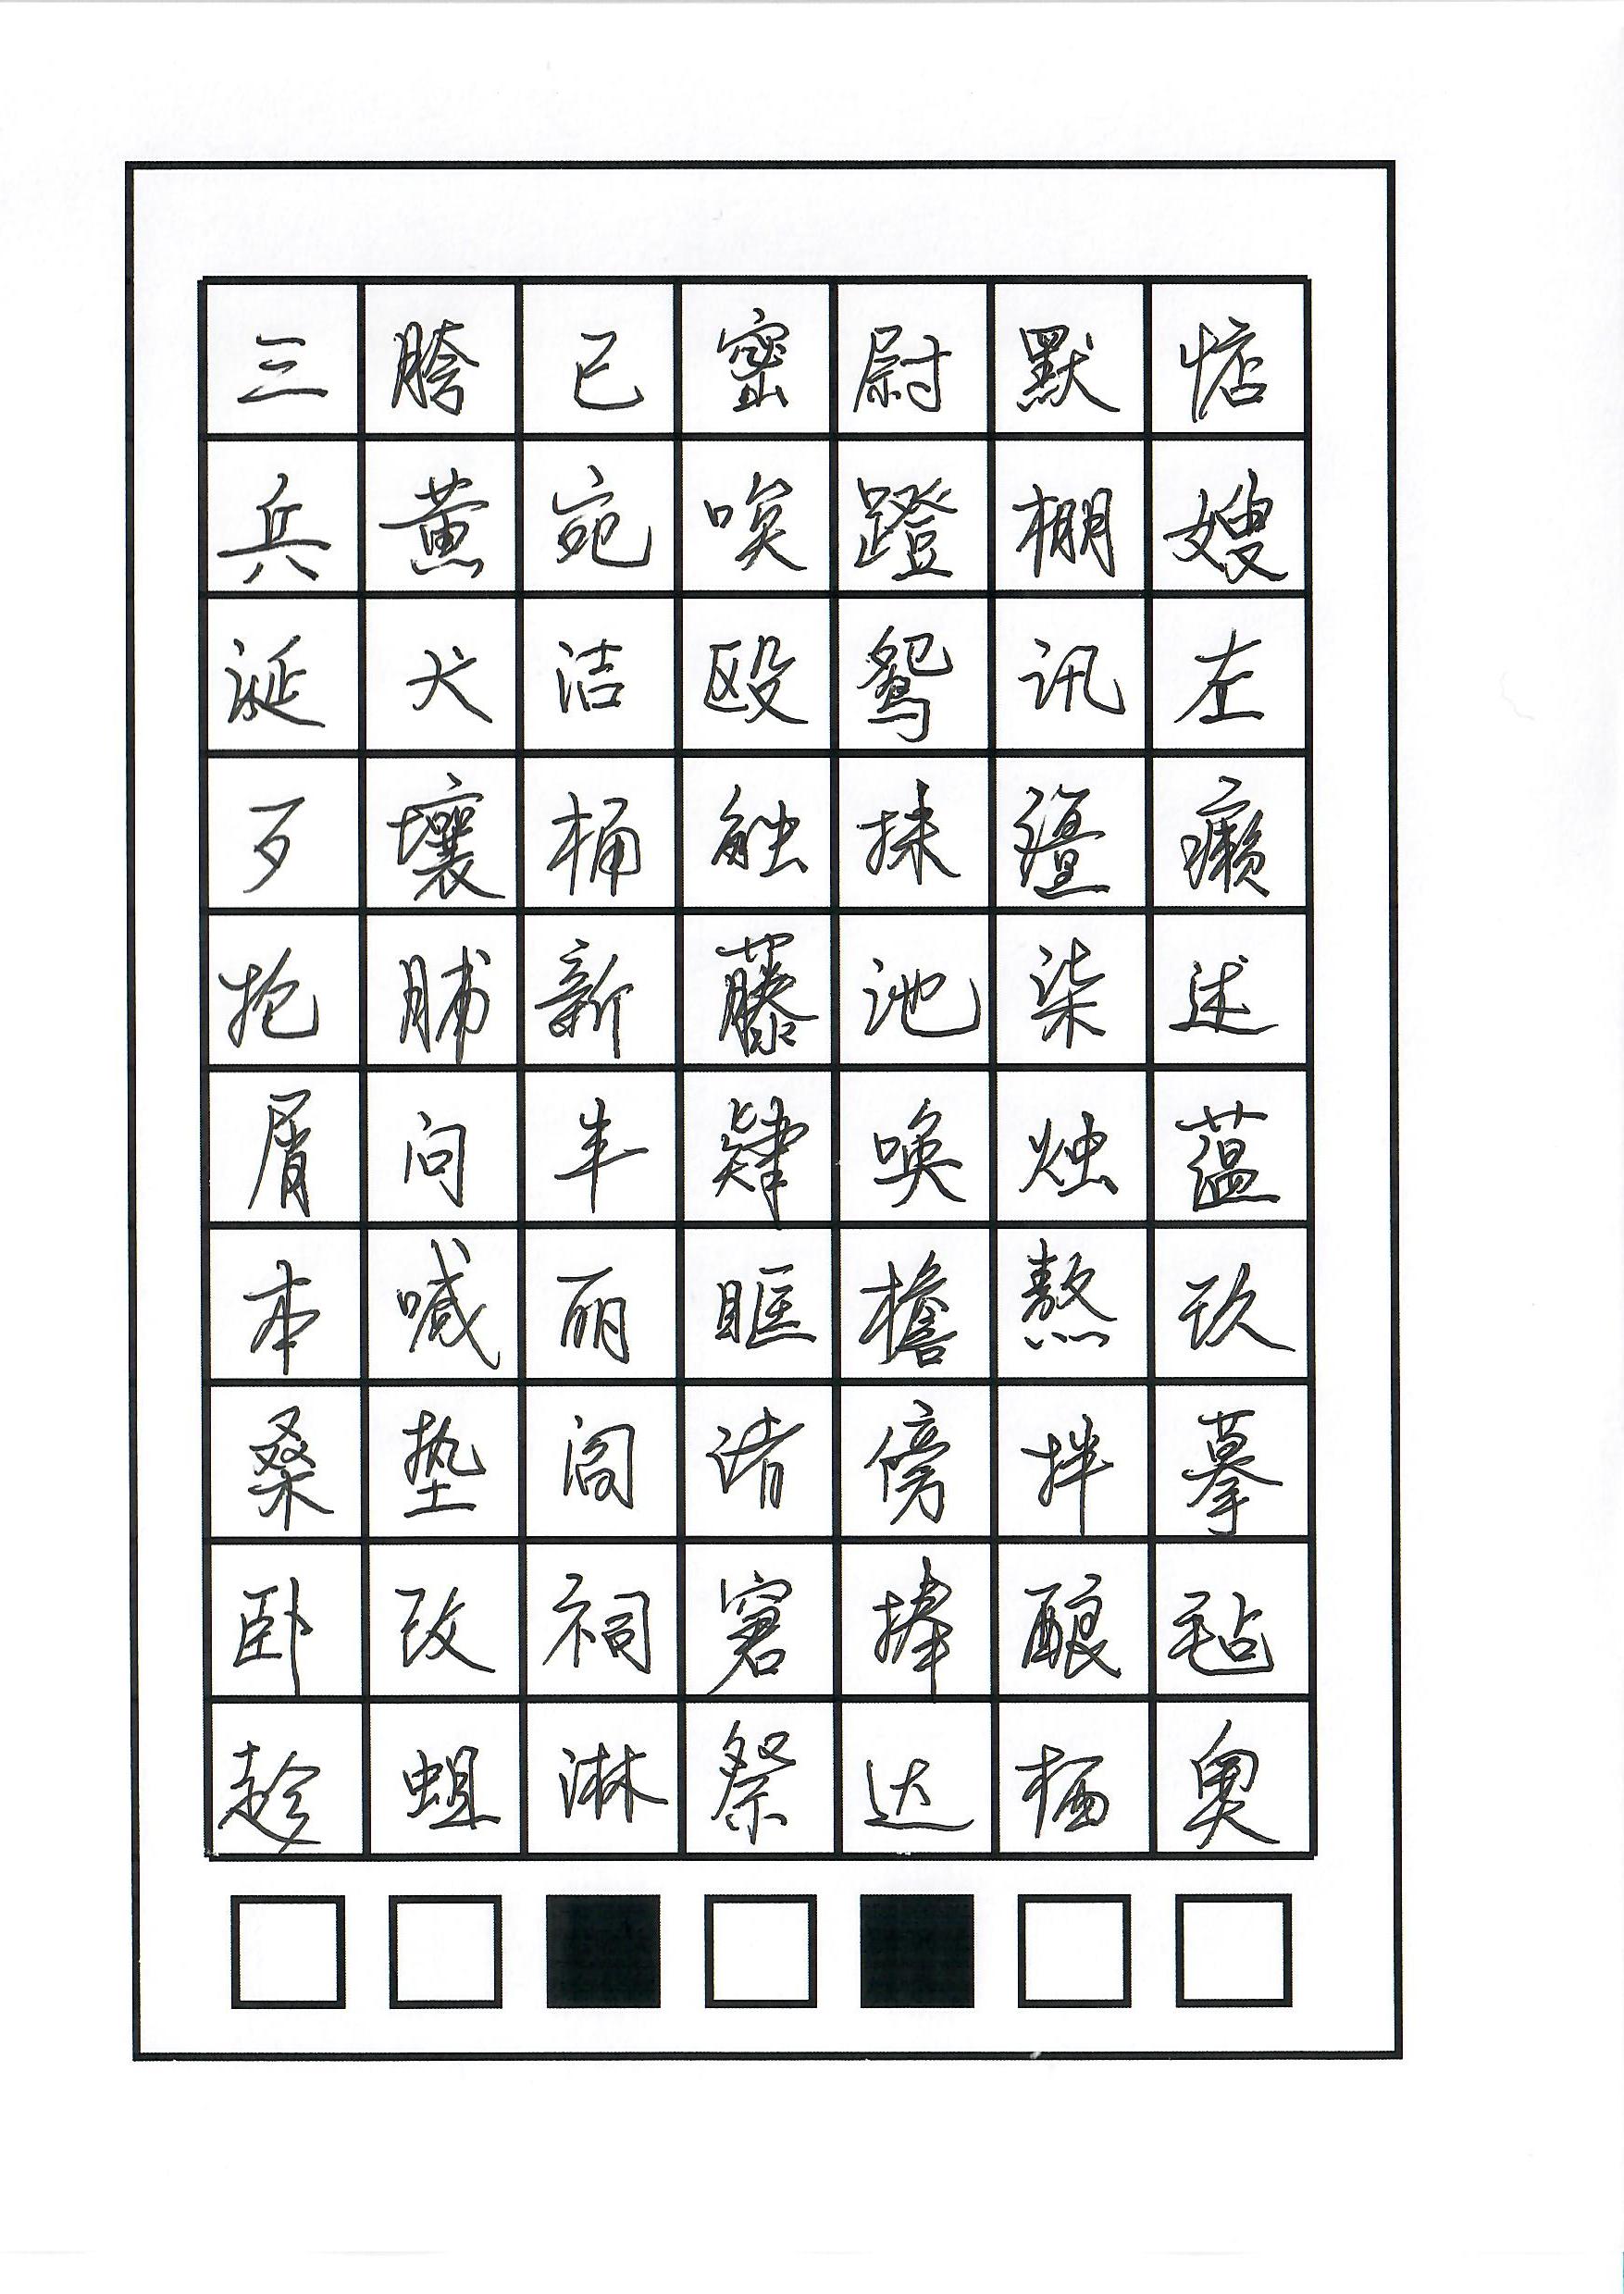 三胯已密尉默惦
兵黄宛唉蹬棚嫂
涎犬洁殴鸳讯左
歹壤桶触抹疆癞
抢脯新藤池柒述
屑问半肄唤烛蕴
本喊丽眶檐熬玖
桑垫阎诸傍拌摹
卧改祠窘捧酿毡
趁蛆淋祭达栖奥